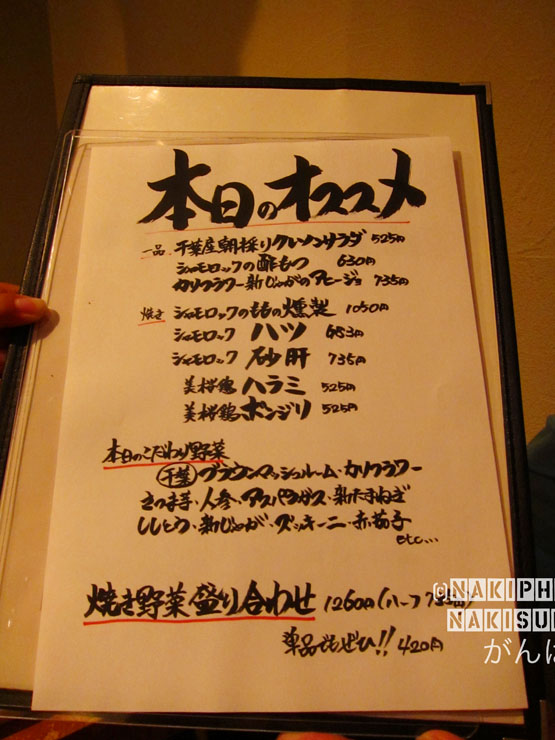 本日のオススメ
一品 千葉産朝採りクレソンサラダ 525円
シャモロックの酢もつ 630円
カリフラワー新じゃがのアヒージョ 735円
焼き シャモロックのももの燻製 1050円
シャモロック ハツ 683円
シャモロック 砂肝 735円
美桜鶏 ハラミ 525円
美桜鶏 ボンジリ 525円
本日のこだわり野菜
千葉 ブラウンマッシュルーム・カリフラワー
さつま芋・人参・アスパラガス・新たまねぎ
ししとう・新じゃが・ズッキーニ・赤茄子
etc...
焼き野菜盛り合わせ 1260円(ハーフ 735円)
単品でもぜひ!! 420円
©NAKIPH
NAKISU
がんば